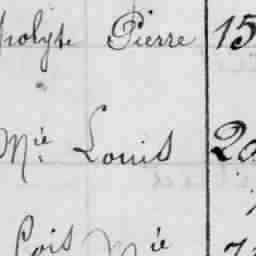 polyte Pierre 15
Mie Louis 20
Cois Mie